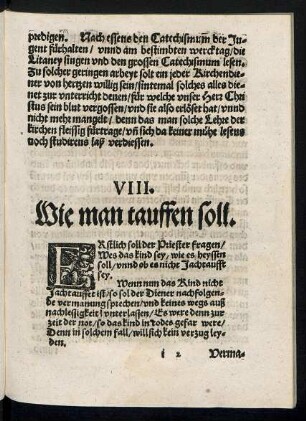 predigen. Nach essens den Catechismum der Ju-
gent fürhalten / vnnd am bestimbten wercktag / die
Litaney singen vnd den grossen Catechismum lesen.
Zu solcher geringen arbeyt solt ein jeder Kirchendie-
ner von hertzen willig sein / sintemal solches alles die-
net zur vnterricht denen / für welche vnser Herr Chri
stus sein blut vergossen / vnd sie also erlöset hat / vnnd
nicht mehr mangelt / denn das man solche Lehr der
kirchen fleissig fürtrage / vñ sich da keiner mühe lesens
noch studirens laß verdriessen.
VIII.
Wie man tauffen soll.
ERstlich soll der Priester fragen /
Wes das kind sey / wie es heyssen
soll / vnnd ob es nicht Jachtaufft
sey.
Wenn nun das Kind nicht
Jachtauffet ist / so sol der Diener nachfolgen-
de vermanung sprechen / vnd keines wegs auß
nachlessigkeit vnterlassen / Es were denn zur
zeit der not / so das kind in todes gefar were /
Denn in solchem fall / will sich kein verzug ley-
den.
i 2 Verma-